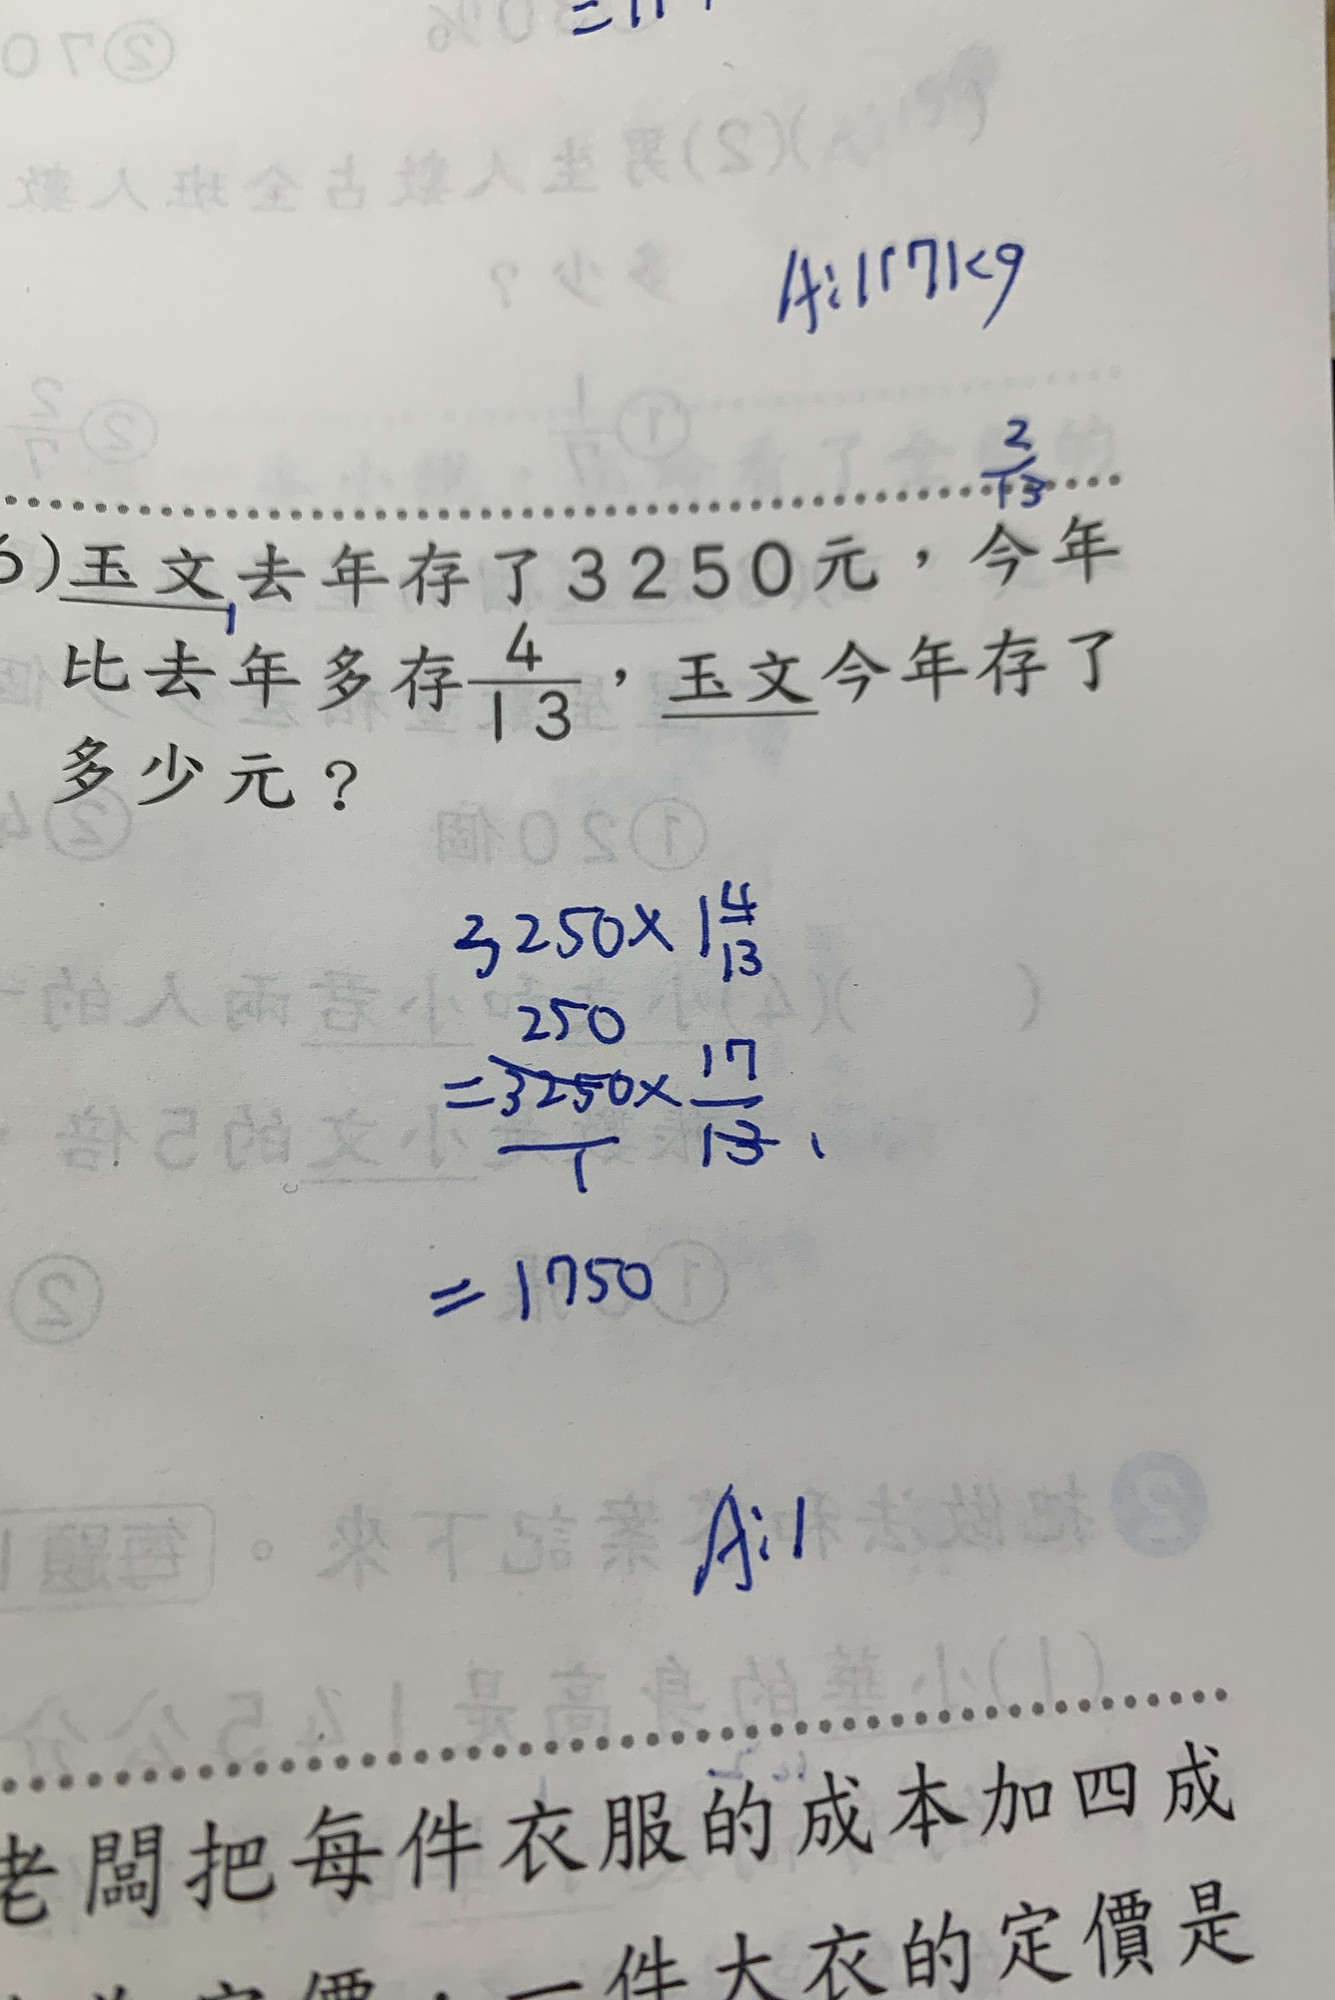 A:117kg
2/13
6)玉文去年存了3250元，今年
1
比去年多存4/13，玉文今年存了
多少元？
3,250×1 4/13
250
=3250/1×17/13 1
=1750
A:1
老闆把每件衣服的成本加四成
為定價，一件大衣的定價是